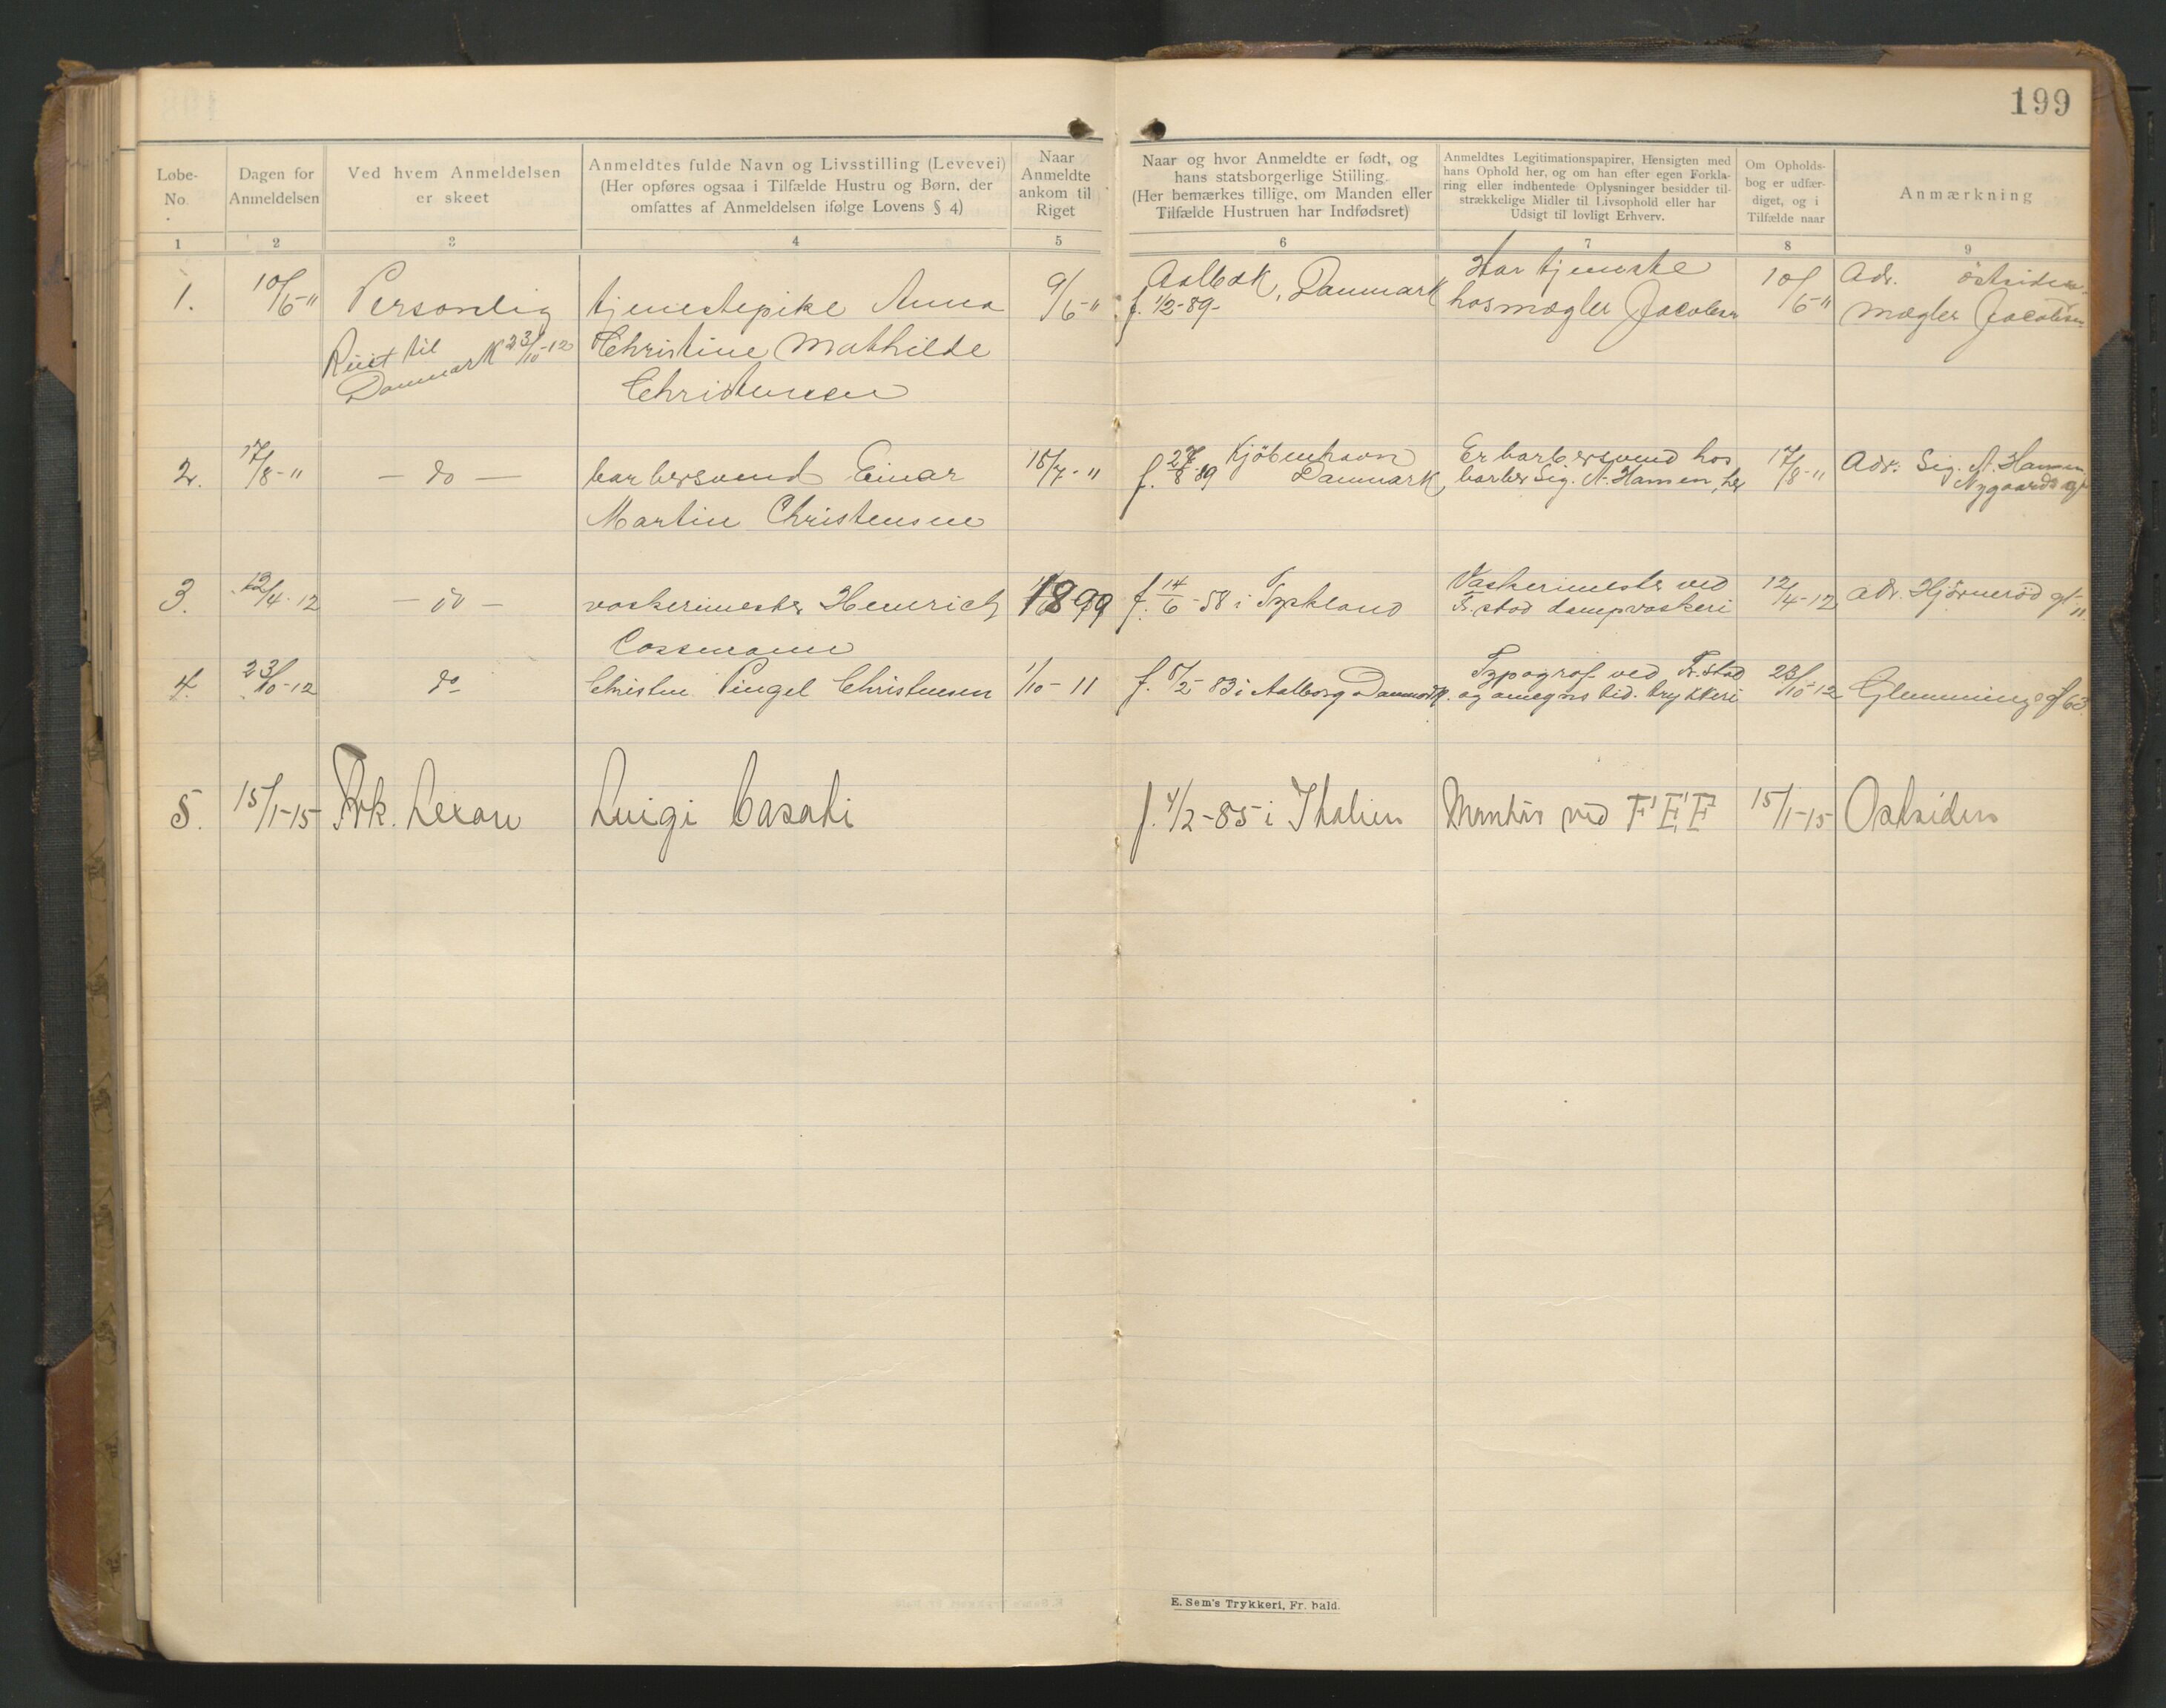 199
Løbe-
No.
Dagen for
Anmeldelsen
Ved hvem Anmeldelsen
er skeet
Anmeldtes fulde Navn og Livsstilling (Levevei)
(Her opføres ogsaa i Tilfælde Hustru og Børn, der
omfattes af Anmeldelsen ifølge Lovens § 4)
Naar
Anmeldte
ankom til
Riget
Naar og hvor Anmeldte er født, og
hans statsborgerlige Stiiling.
(Her bemærkes tillige, om Manden eller
Tilfælde Hustruen har Indfødsret)
Anmeldtes Legitimationspapirer, Hensigten med
hans Ophold her, og om han efter egen Forkla-
ring eller indhentede Oplysninger besidder til-
strækkelige Midler til Livsophold eller har
Udsigt til lovligt Erhverv.
Om Opholds-
bog er udfær-
diget, og i
Tilfælde naar
Anmærkning
1 2 3 4 5 6 7 8 9
1. 10/6-11 Personlig tjenestepike Anna 9/6-11 Aalbæk, Danmark Har tjeneste 10/6-11 Adr. östsiden
f. 1/2-89- hos mægler Jacobsen mægler Jacobsen
Reist til Danmark 23/10-12 Christine Mathilde
Christensen
2. 17/8-11 - do - barbersvend Einar 15/7-11 f. 27/8 89 Kjöbenhavn Er barbersvend hos 17/8-11 Adr: Sig. A. Hansen
Danmark, barber Sig. A. Hansen, her Nygaardsgt
Martin Christensen
3. 12/4-12 - do - vaskerimester Heinrich 1899 f. 14/6-58 i Tyskland Vaskerimester ved 12/4-12 adr. Hjörneröd gt 11
Fr.stad dampvaskeri
Cossmann
4. 23/10-12 do Christen Pingel Christensen 1/10-11 f. 5/2-83 i Aalborg Danmark. Typograf ved Fr.stad 23/10-12 Glemminggt 63.
og omegns tid. trykkeri
5. 15/1-15 Luigi Casati f. 4/2-85 i Italien Montör ved F'E'F 15/1-15 Östsiden
E. Sem's Trykkeri, Fr. hald.